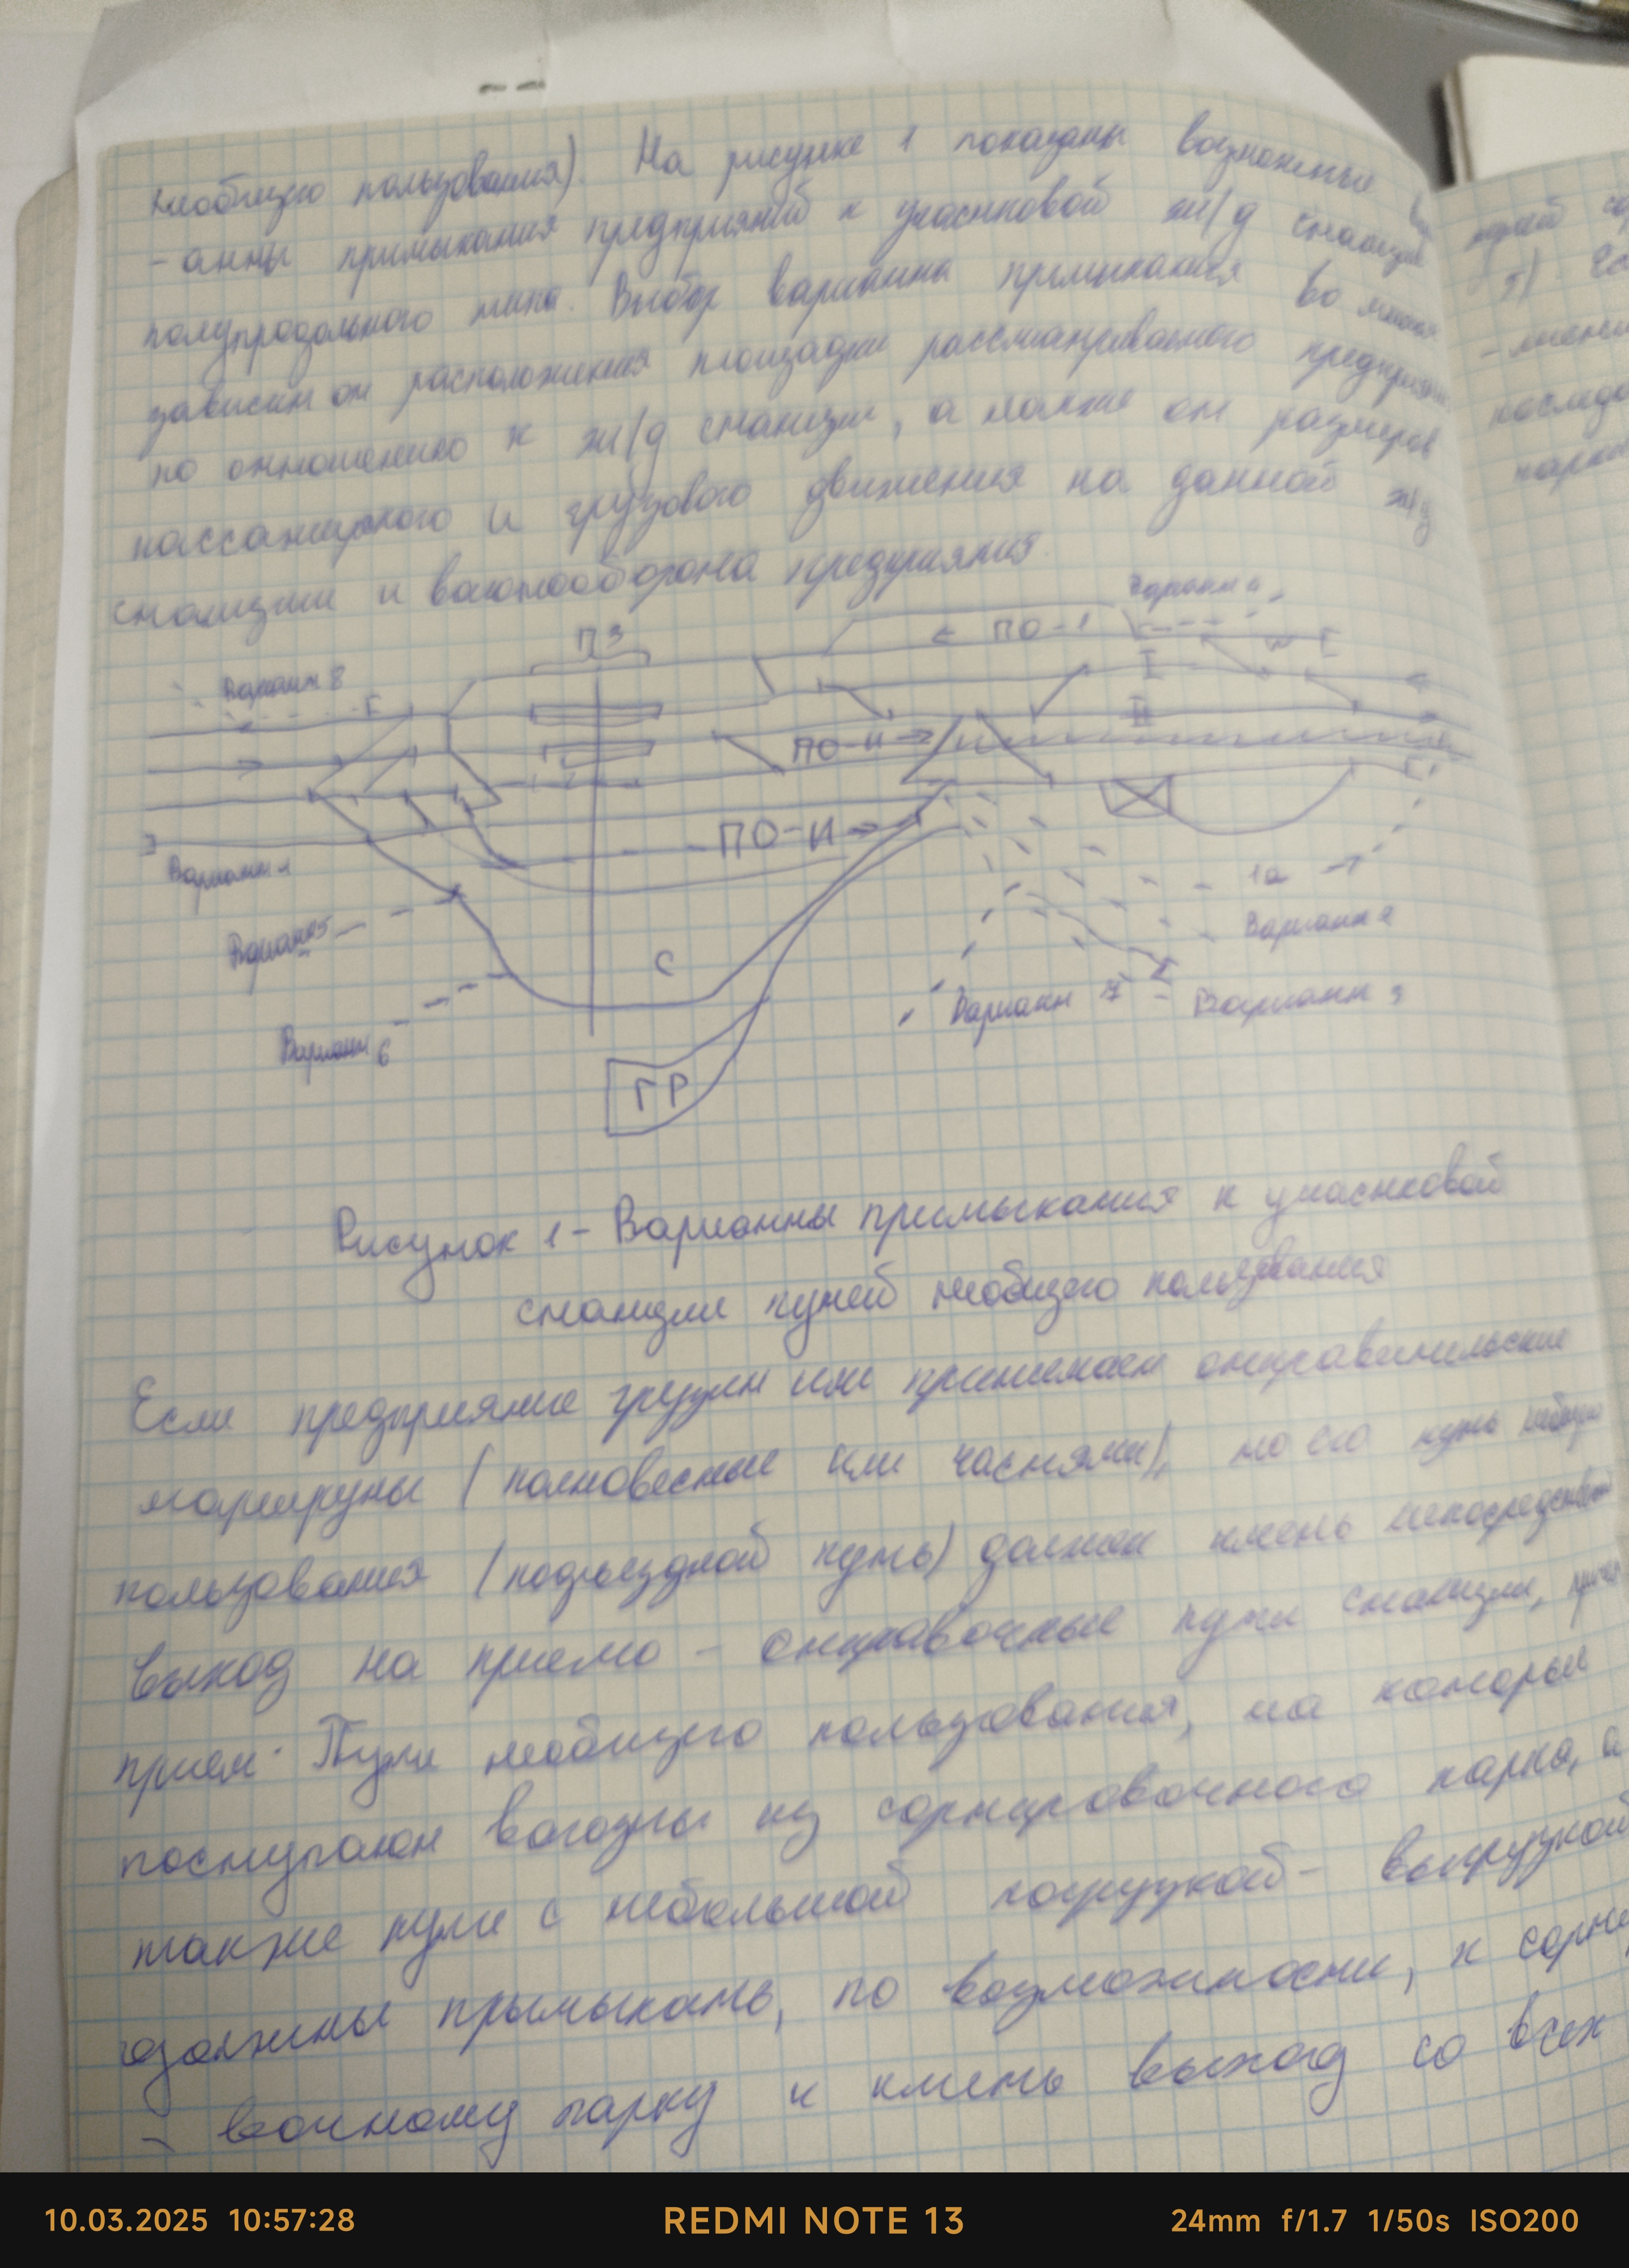 необщего пользования). На рисунке 1 показаны возможные
-анты примыкания предприятий к участковой ж/д станции
полупродольного типа. Выбор варианта примыкания во многом
зависит от расположения площадки рассматриваемого предприятия
по отношению к ж/д станции, а также от размеров
пассажирского и грузового движения на данной ж/д
станции и вагонооборота предприятия.
Вариант 4
ПЗ
ПО-I
Вариант 8
I
II
ПО-II
ПО-II
Вариант
1а
Вариант 5
Вариант 2
С
Вариант 7
Вариант 3
Вариант 6
ГР
Рисунок 1 - Варианты примыкания к участковой
станции путей необщего пользования
Если предприятие грузит или принимает отправительские
маршруты (полновесные или частями), то его путь необщего
пользования (подъездной путь) должен иметь непосредствен
выход на приемо - отправочные пути станции,
прием. Пути необщего пользования, на которые
поступают вагоны из сортировочного парка, а
также пути с небольшой погрузкой - выгрузкой
должны примыкать, по возможности, к сорти
- вочному парку и иметь выход со всех
10.03.2025 10:57:28 REDMI NOTE 13 24mm f/1.7 1/50s ISO200